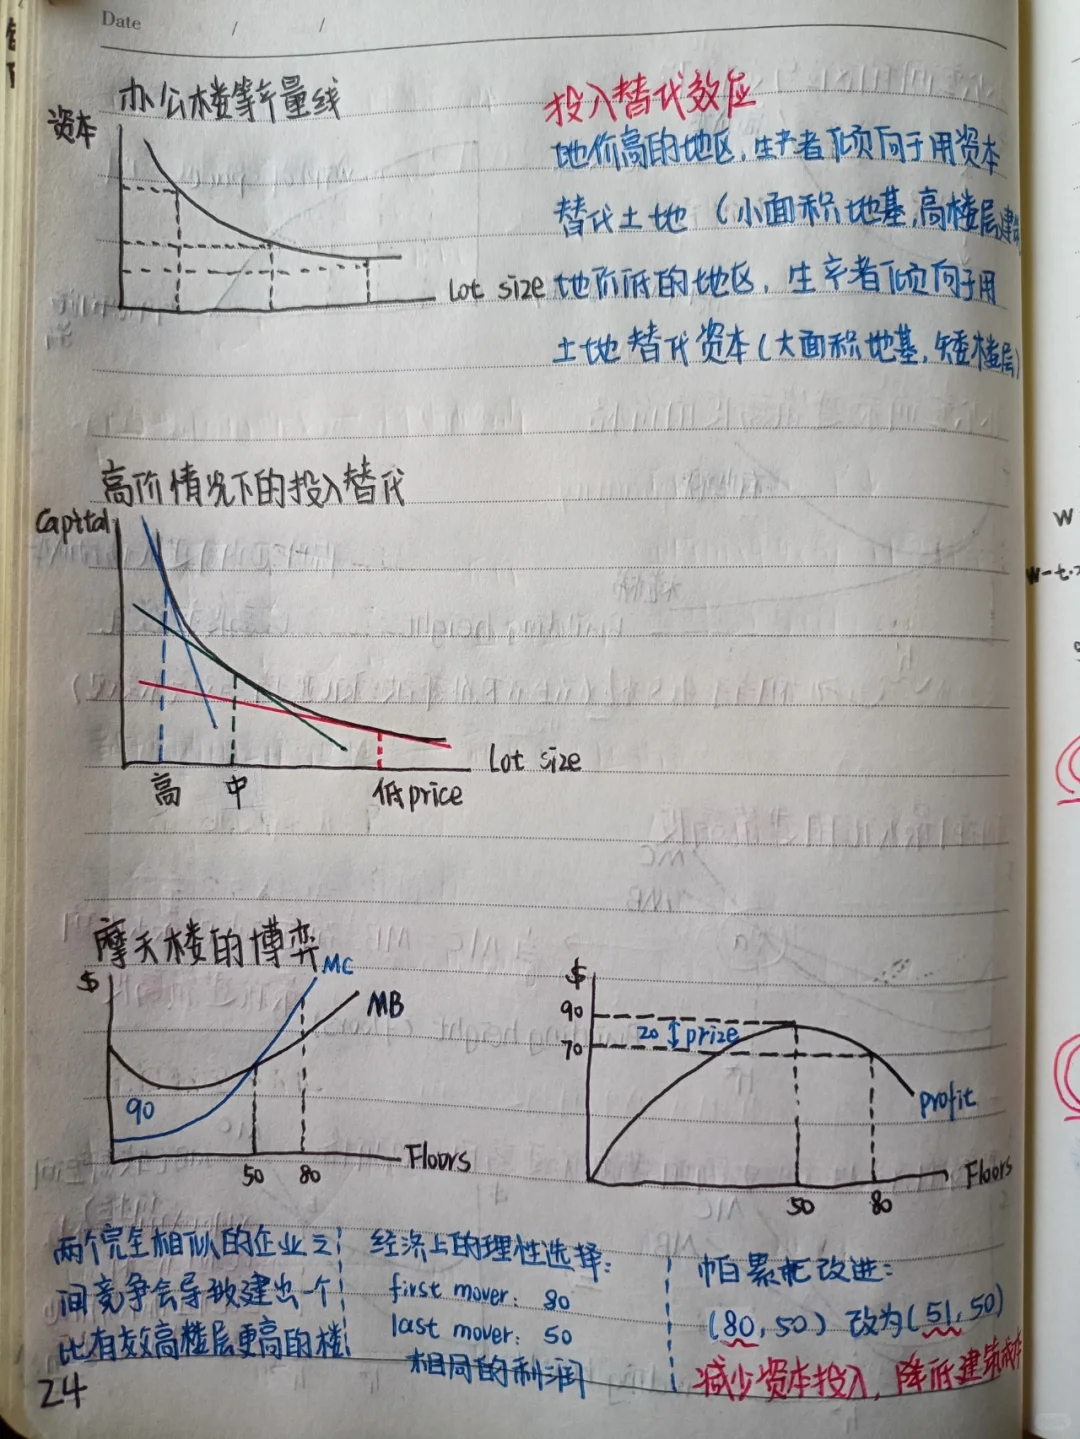 Date / /
办公楼等产量线
资本
Lot size
投入替代效应
地价高的地区,生产者倾向于用资本
替代土地(小面积地基,高楼层建筑
地价低的地区,生产者倾向于用
土地替代资本(大面积地基,矮楼层)
高价情况下的投入替代
Capital
Lot size
高 中 低 price
摩天楼的博弈
$
MC
MB
90
50 80
Floors
$
90
70
20 prize
profit
50 80
Floors
两个完全相似的企业之
间竞争会导致建出一个
比有效高楼层更高的楼
经济上的理性选择:
first mover: 80
last mover: 50
相同的利润
帕累托改进:
(80,50) 改为(51,50)
减少资本投入,降低建筑成本
24
W
W-t·